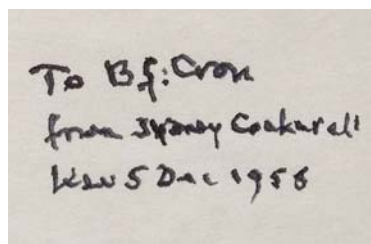 To B.f: Cron
from Sydney Cockerell
Kew 5 Dec 1958